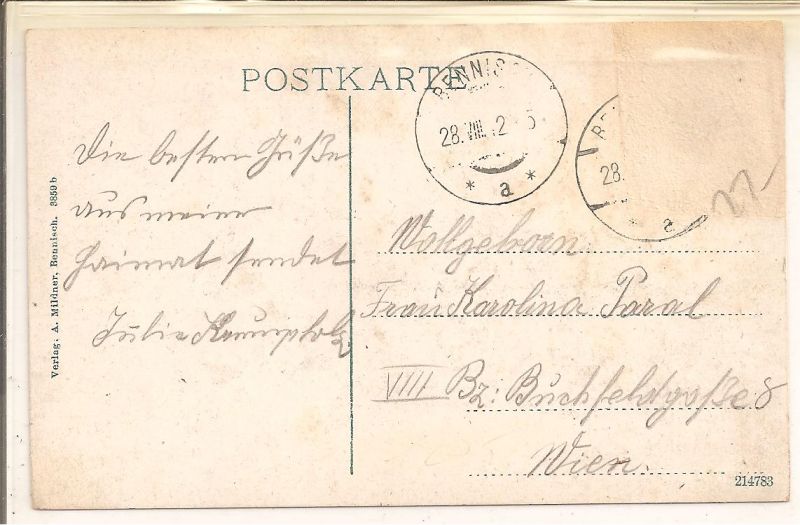 POSTKARTE
BENNIS
28. VIII. 12 - 5
* a *
BE
28.
* a
22
Die besten Grüße
aus meiner
Heimat sendet
Julie Krumpholz
Wollgeborn
Frau Karolina Paral
VIII Bz: Buchfeldgaße 8
Wien.
Verlag: A. Mildner, Bennisch. 3859 b
214783